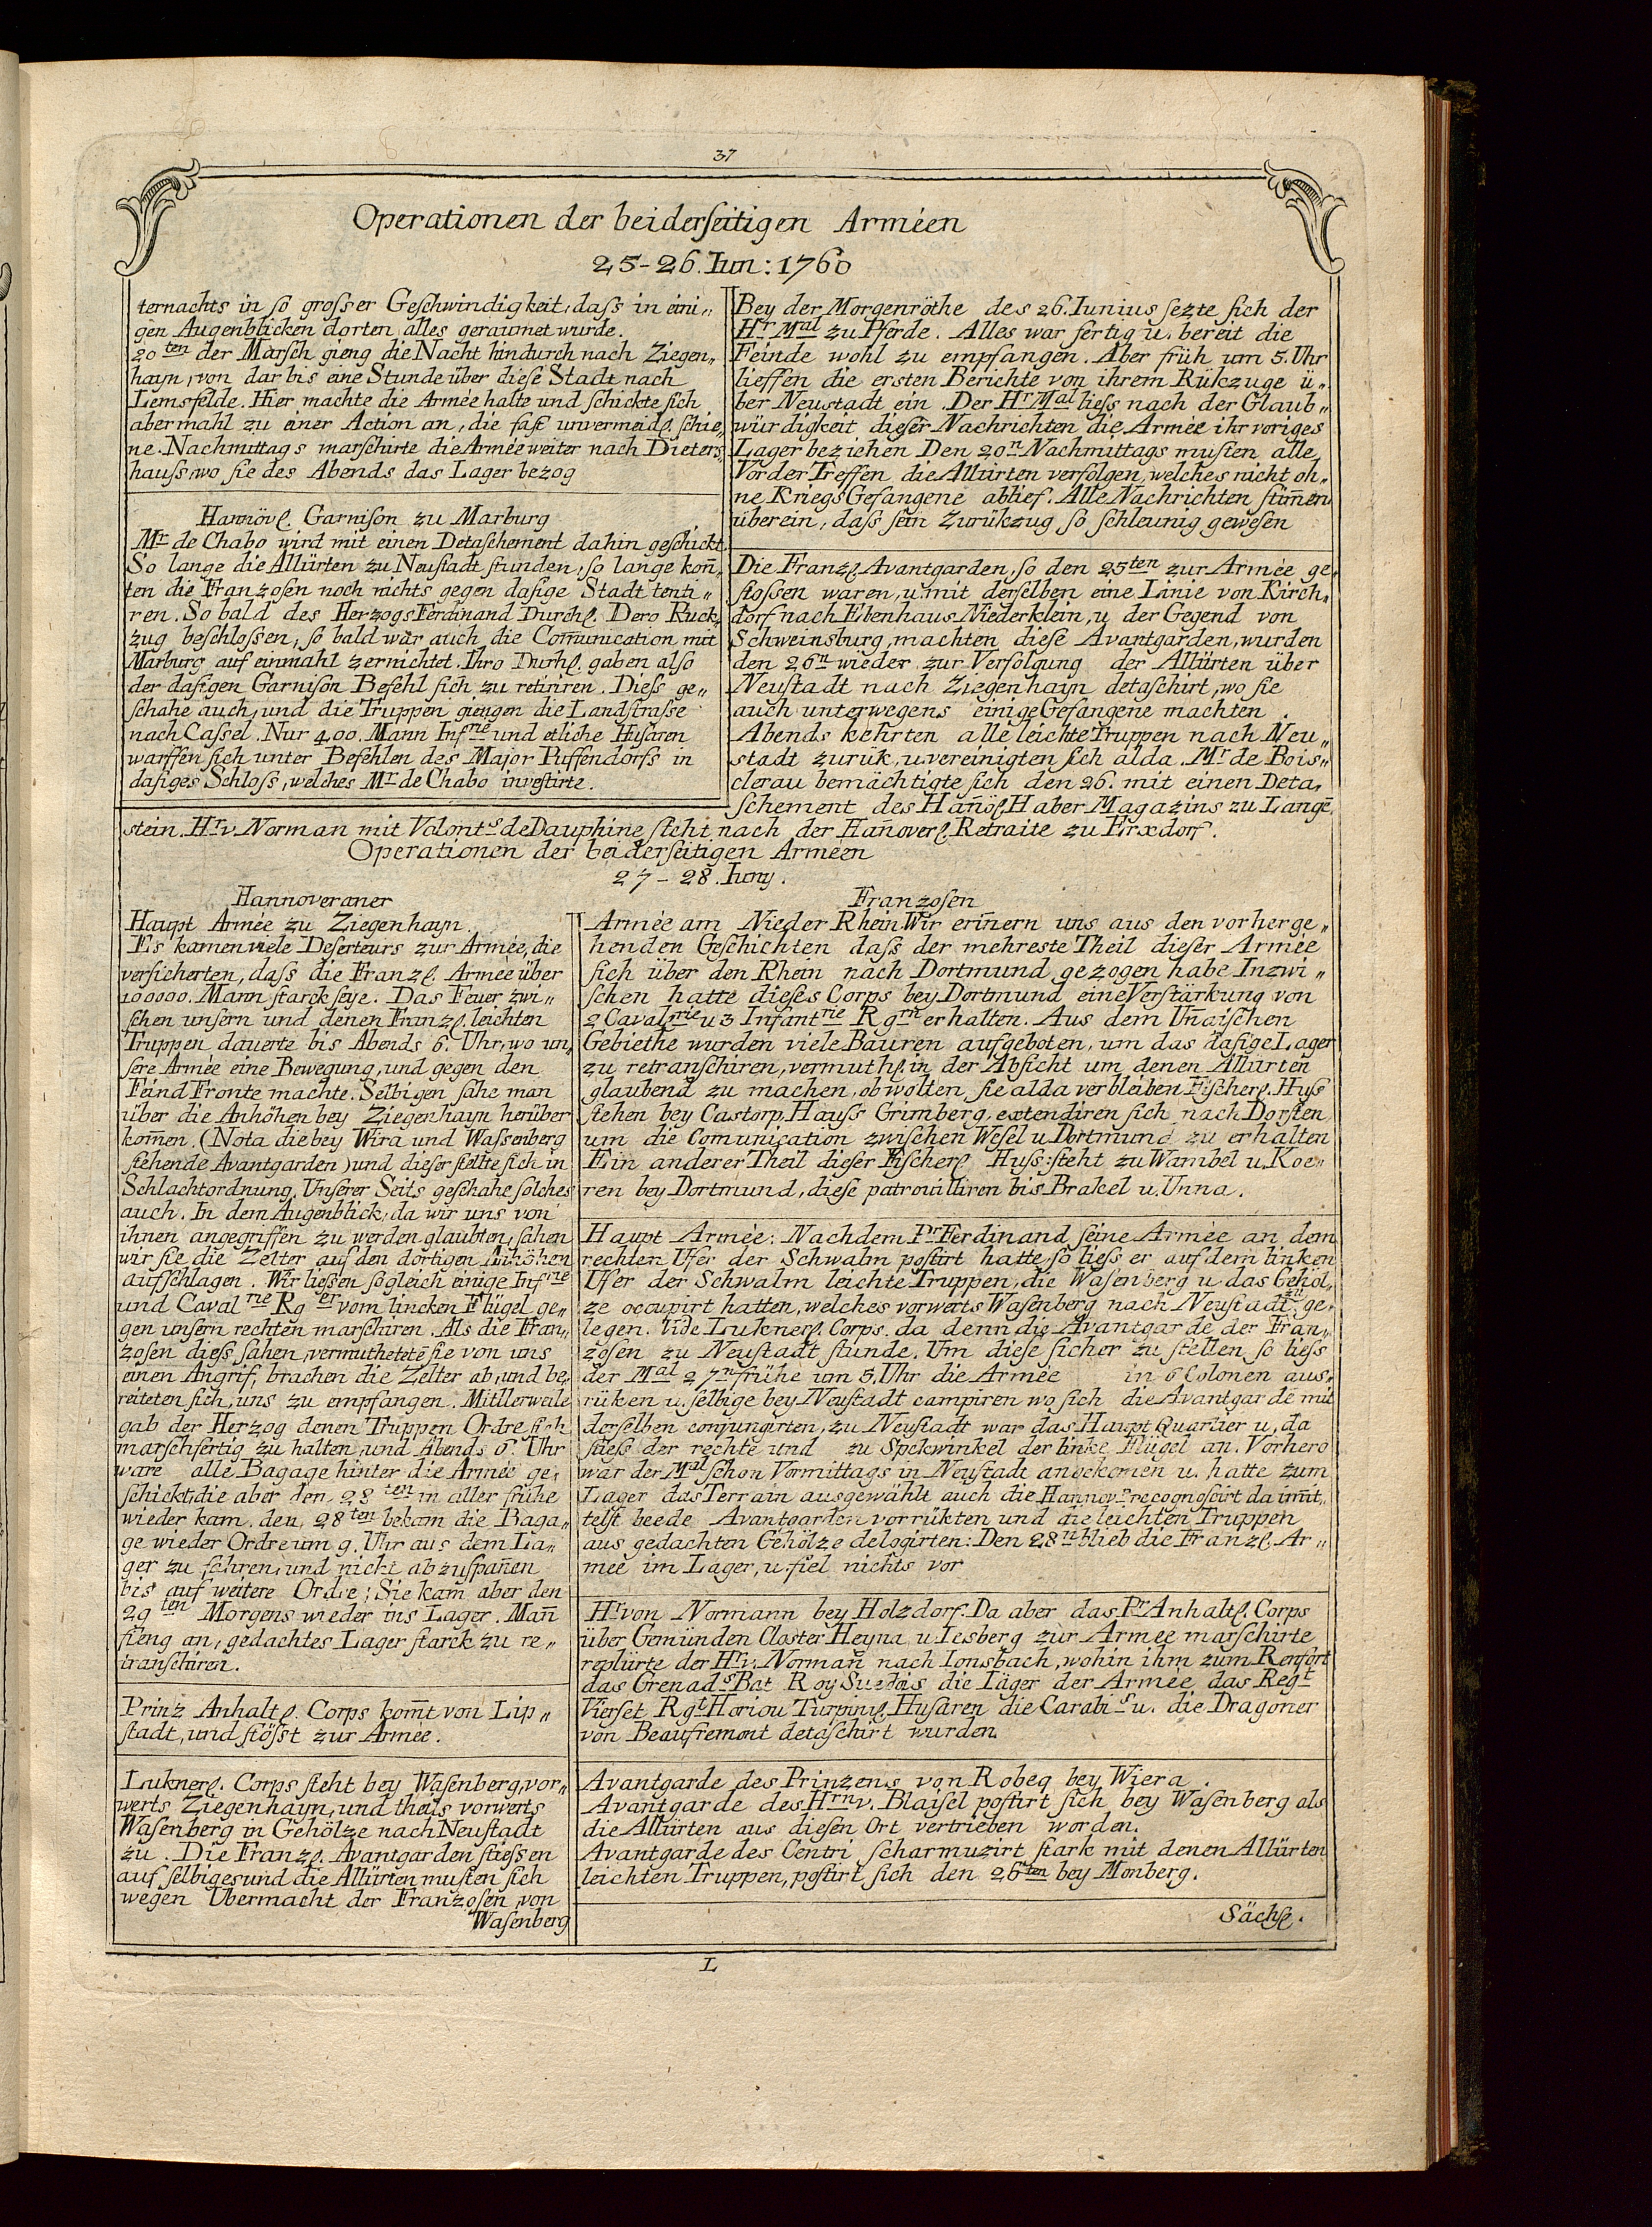 37
Operationen der beiderſeitigen Arméen
25-26. Iun: 1760
ternachts in ſo groſser Geſchwindigkeit, daſs in eini„
gen Augenblicken dorten alles geraumet wurde.
20ten der Marſch gieng die Nacht hindurch nach Ziegen„
hayn, von dar bis eine Stunde über dieſe Stadt nach
Lemsfelde. Hier machte die Armée halte und ſchickte ſich
abermahl zu einer Action an, die faſt unvermeidl. ſchie„
ne. Nachmittags marſchirte die Armée weiter nach Dieters„
hauſs, wo ſie des Abends das Lager bezog
Hannövl. Garniſon zu Marburg
Mr de Chabo wird mit einen Detaſchement dahin geſchickt.
So lange die Allürten zu Neuſtadt ſtunden, ſo lange kon̄„
ten die Franzoſen noch nichts gegen daſige Stadt tenti„
ren. So bald des Herzogs Ferdinand Durchl. Dero Ruck„
zug beſchloſsen, ſo bald war auch die Com̄unication mit
Marburg auf einmahl zernichtet. Ihro Durhl. gaben alſo
der daſigen Garniſon Befehl ſich zu retiriren. Dieſs ge„
ſchahe auch, und die Truppen giengen die Landſtraſse
nach Caſsel. Nur 400. Mann Infrie und etliche Huſaren
warffen ſich unter Befehlen des Major Puffendorfs in
daſiges Schloſs, welches Mr de Chabo inveſtirte.
Bey der Morgenröthe des 26. Iunius ſezte ſich der
Hr Mal zu Pferde. Alles war fertig u. bereit die
Feinde wohl zu empfangen. Aber früh um 5. Uhr
lieffen die erſten Berichte von ihrem Rükzuge ü„
ber Neustadt ein. Der Hr Mal lieſs nach der Glaub„
würdigkeit dieſer Nachrichten die Armée ihr voriges
Lager beziehen Den 20n Nachmittags muſten alle
Vorder Treffen die Allürten verfolgen, welches nicht oh„
ne Kriegs Gefangene ablief. Alle Nachrichten ſtim̄en
überein, daſs ſein Zurükzug ſo ſchleunig geweſen
Die Franzl. Avantgarden, ſo den 25ten zur Armée ge„
ſtoſsen waren, u. mit derſelben eine Linie von Kirch„
dorf nach Ebenhaus Niederklein, u der Gegend von
Schweinsburg, machten dieſe Avantgarden, wurden
den 26n wieder zur Verfolgung der Allürten über
Neuſtadt nach Ziegenhayn detaſchirt, wo ſie
auch unterwegens einige Gefangene machten.
Abends kehrten alle leichte Truppen nach Neu„
stadt zurük, u. vereinigten ſich alda. Mr de Bois„
clerau bemächtigte ſich den 26. mit einen Deta„
ſchement des Han̄öl. Haber Magazins zu Langē„
stein. Hr v. Norman mit Volonts de Dauphine ſteht nach der Han̄overl. Retraite zu Erxdorf.
Operationen der beiderſeitigen Arméen
27-28. Iuny.
Hannoveraner
Haupt Armée zu Ziegenhayn.
Es kamen viele Deſerteurs zur Armée, die
verſicherten, daſs die Franzl. Armée über
100000. Mann ſtarck ſeye. Das Feuer zwi„
ſchen unſern und denen Franzl. leichten
Truppen dauerte bis Abends 6. Uhr, wo un„
ſere Armée eine Bewegung, und gegen den
Feind Fronte machte. Selbigen ſahe man
über die Anhöhen bey Ziegenhayn herüber
kom̄en. (Nota die bey Wira und Waſsenberg
ſtehende Avantgarden) und dieſer ſtellte ſich in
Schlachtordnung. Unſerer Seits geſchahe ſolches
auch. In dem Augenblick, da wir uns von
ihnen angegriffen zu werden glaubten, ſahen
wir ſie die Zelter auf den dortigen Anhöhen
aufſchlagen. Wir lieſsen ſogleich einige Infrie
und Cavalrie Rger vom lincken Flügel ge„
gen unſern rechten marſchiren. Als die Fran„
zoſen dieſs ſahen, vermuthetetē ſie von uns
einen Angrif, brachen die Zelter ab, und be„
reiteten ſich, uns zu empfangen. Mittlerweile
gab der Herzog denen Truppen Ordre ſich
marſchfertig zu halten, und Abends 6. Uhr
ware alle Bagage hinter die Armée ge„
ſchickt, die aber den 28ten in aller frühe
wieder kam. den 28ten bekam die Baga„
ge wieder Ordre um 9. Uhr aus dem La„
ger zu fahren, und nicht abzuſpan̄en
bis auf weitere Ordre; Sie kam aber den
29ten Morgens wieder ins Lager. Man̄
fieng an, gedachtes Lager ſtarck zu re„
tranſchiren.
Prinz Anhaltl. Corps kom̄t von Lip„
ſtadt, und ſtöſst zur Armée.
Luknerl. Corps ſteht bey Waſenberg, vor„
werts Ziegenhayn, und theils vorwerts
Waſenberg in Gehölze nach Neuſtadt
zu. Die Franzl. Avantgarden ſtieſsen
auf ſelbiges und die Allürten muſten ſich
wegen Übermacht der Franzoſen, von
Waſenberg
Franzoſen
Armée am Nieder Rhein Wir erin̄ern uns aus den vorherge„
henden Geſchichten daſs der mehreste Theil dieſer Armée
ſich über den Rhein nach Dortmund gezogen habe Inzwi„
ſchen hatte dieſes Corps bey Dortmund eine Verſtärkung von
2 Cavalrie u 3 Infantrie Rgrn erhalten. Aus dem Un̄aiſchen
Gebiethe wurden viele Bauren aufgeboten, um das daſige Lager
zu retranſchiren, vermuthl. in der Abſicht um denen Allürten
glaubend zu machen, ob wolten ſie alda verbleiben Fiſcherl. Huſs
ſtehen bey Castorp, Hauſs Grimberg, extendiren ſich nach Dorſten
um die Comunication zwiſchen Weſel u Dortmund zu erhalten
Ein anderer Theil dieſer Fiſcherl. Huſs: ſteht zu Wambel u. Koe„
ren bey Dortmund, dieſe patrouilliren bis Brakel u. Unna.
Haupt Armée: Nachdem Pr Ferdinand ſeine Armée an dem
rechten Ufer der Schwalm poſtirt hatte, ſo lieſs er auf dem linken
Ufer der Schwalm leichte Truppen, die Waſenberg u. das Gehöl„
ze occupirt hatten, welches vorwerts Waſenberg nach Neustadt zu ge„
legen. Vide Luknerl. Corps. da denn die Avantgarde der Fran„
zoſen zu Neuſtadt ſtunde. Um dieſe ſicher zu ſtellen, ſo lieſs
der Mal 27n frühe um 5. Uhr die Armée in 6 Colonen aus„
rüken u. ſelbige bey Neuſtadt campiren wo ſich die Avantgarde mit
derſelben conjungirten, zu Neuſtadt war das Haupt Quartier u, da
ſtieſs der rechte und zu Spekwinkel der linke Flügel an. Vorhero
war der Mal ſchon Vormittags in Neuſtadt angekomen u. hatte zum
Lager das Terrain ausgewählt auch die Hannovr recognoſcirt da im̄it„
telſt beede Avantgarden vorrükten und die leichten Truppen
aus gedachten Gehölze delogirten: Den 28n blieb die Franzl. Ar„
mee im Lager, u. fiel nichts vor
Hr von Normann bey Holzdorf. Da aber das Pr Anhaltl. Corps
über Gemünden Closter Heyna u. Iesberg zur Armee marſchirte
replürte der Hr v. Norman̄ nach Ionsbach, wohin ihm zum Renfort
das Grenads Bat Roy Suedois die Iäger der Armée das Regt
Vierſet Rgt Horiou Turpinl. Huſaren die Carabis u. die Dragoner
von Beaufremont detaſchirt wurden.
Avantgarde des Prinzens von Robeq bey Wiera.
Avantgarde des Hrn v. Blaiſel poſtirt ſich bey Waſenberg als
die Allürten aus dieſen Ort vertrieben worden.
Avantgarde des Centri ſcharmuzirt ſtark mit denen Allürten
leichten Truppen, poſtirt ſich den 26ten bey Monberg.
Sächſl.
L